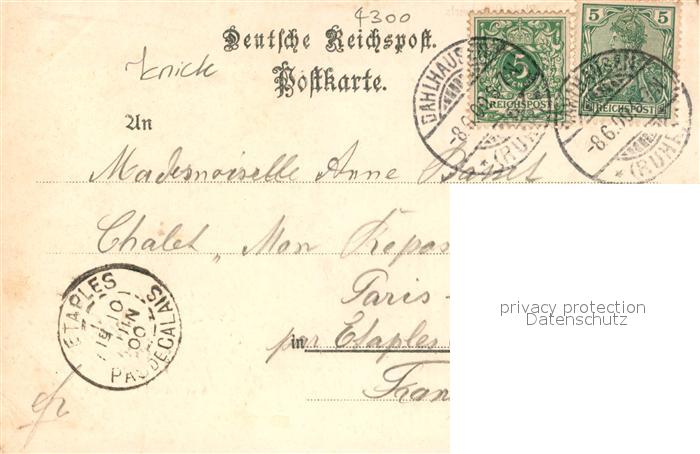 4300
Deutsche Reichspost.
Postkarte.
knick
5
REICHSPOST
5 5
REICHSPOST
DAHLHAUSEN
-8.6.00.
*(RUHR)
-8.6.00
*(RUHR)
An
Mademoiselle Anne
Chalet „Mon Repos
Paris-
in per Etaples
Fran
ETAPLES
10
JUIN
00
PAS DE CALAIS
privacy protection
Datenschutz